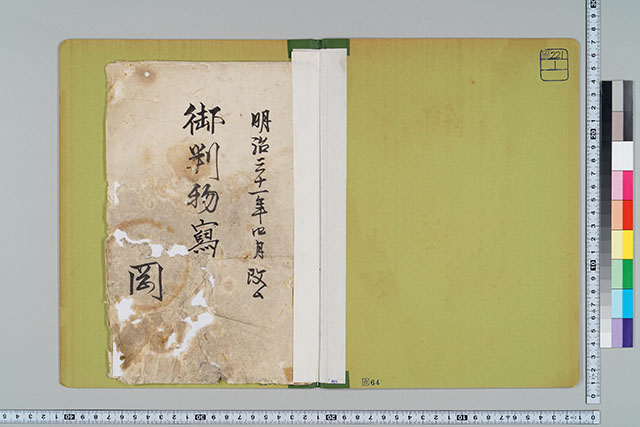 明治三十一年四月改ム
御判物寫
岡
221
1
64